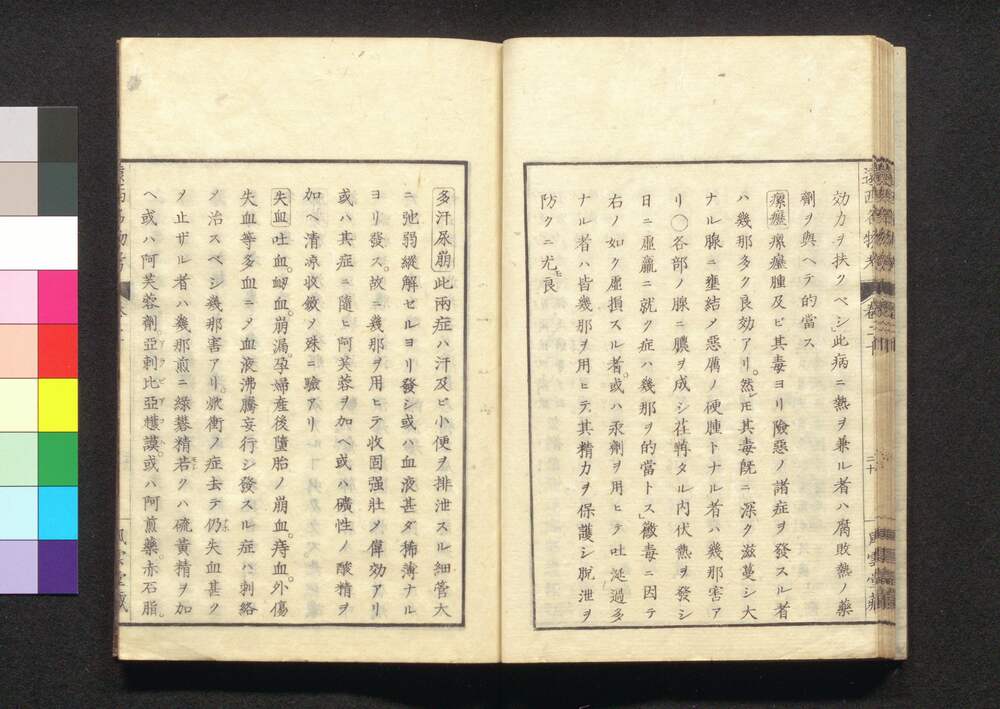 効力ヲ扶クベシ」此病ニ熱ヲ兼ル者ハ腐敗熱ノ藥
劑ヲ與ヘテ的當ス
瘰癧瘰癧腫及ビ其毒ヨリ險惡ノ諸症ヲ發スル者
ハ幾那多ク良効アリ。然𪜈其毒既ニ深ク滋蔓シ大
ナル腺ニ壅結メ惡厲ノ硬腫トナル者ハ幾那害ア
リ〇各部ノ腺ニ膿ヲ成シ在苒タル内伏熱ヲ發シ
日ニ虛羸ニ就ク症ハ幾那ヲ的當トス」黴毒ニ因テ
右ノ如ク虛損スル者。或ハ汞劑ヲ用ヒテ吐涎過多
ナル者ハ皆幾那ヲ用ヒテ其精力ヲ保護シ脫泄ヲ
防クニ尤モ良
二十
多汗尿崩此兩症ハ汗及ビ小便ヲ排泄スル細管大
ニ弛弱縱解セルヨリ發シ或ハ血液甚ダ稀薄ナル
ヨリ發ス。故ニ幾那ヲ用ヒテ收固强壯メ偉効アリ
或ハ其症ニ隨ヒ阿芙蓉ヲ加ヘ或ハ礦性ノ酸精ヲ
加ヘ清凉收斂メ殊ニ驗アリ
失血吐血。衂血。崩漏。孕婦產後墮胎ノ崩血。痔血。外傷
失血等多血ニメ血液沸騰妄行シ發スル症ハ刺絡
メ治スベシ幾那害アリ。焮衝ノ症去テ仍失血甚ク
メ止ザル者ハ幾那煎ニ綠礬精若クハ硫黃精ヲ加
ヘ或ハ阿芙蓉劑。亞剌比亞護謨。或ハ阿煎藥。赤石脂。